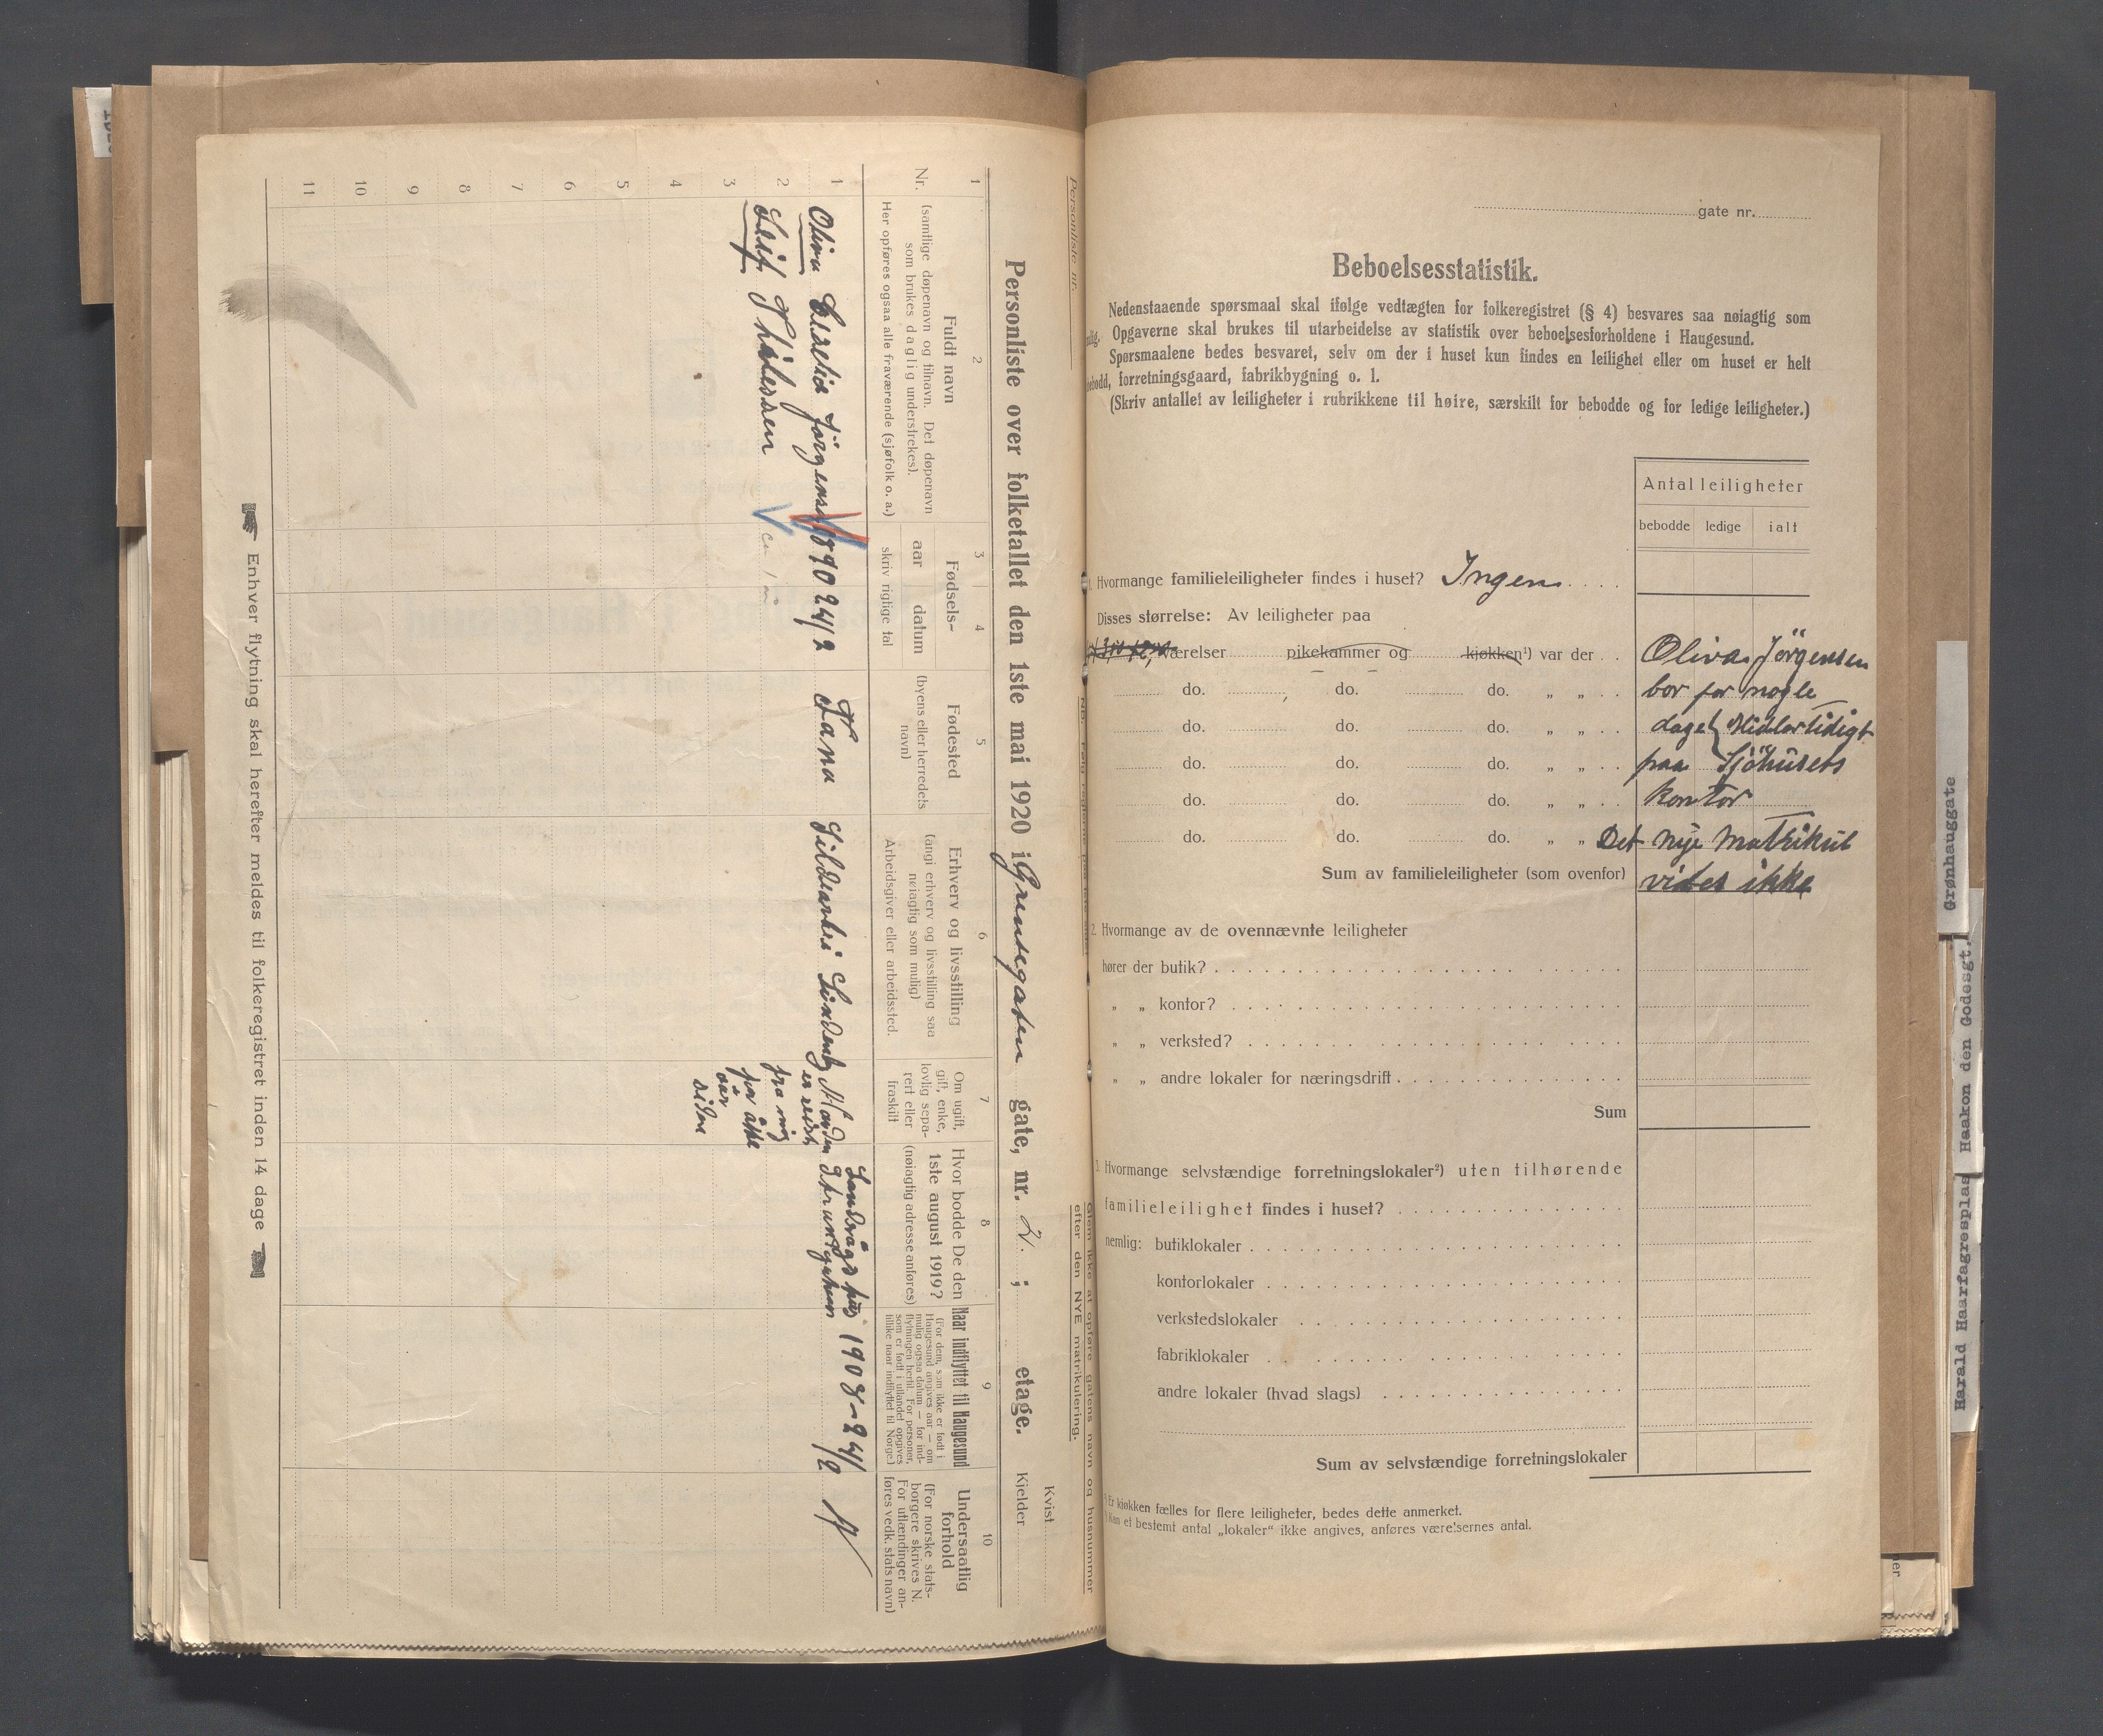 Personliste nr.
Personliste over folketallet den 1ste mai 1920 i Grensegaten gate, nr. 2. ; etage.
Kvist
Kjelder
1 2 3 4 5 6 7 8 9 10
Nr.
Fuldt navn
(samtlige døpenavn og tilnavn. Det døpenavn
som brukes daglig understrekes).
Her opføres ogsaa alle fraværende (sjøfolk o. a.)
Fødsels-
aar datum
skriv rigtige tal
Fødested
(byens eller herredets
navn)
Erhverv og livsstilling
(angi erhverv og livsstilling saa
nøiagtig som mulig)
Arbeidsgiver eller arbeidssted.
Om ugift,
gift, enke,
lovlig sepa-
rert eller
fraskilt
Hvor bodde De den
1ste august 1919?
(nøiagtig adresse anføres)
Naar indflyttet til Haugesund
(For dem, som ikke er født i
Haugesund angives aar — om
mulig ogsaa datum — for ind-
flytningen hertil. For personer,
som er født i utlandet opgives
tillike naar indflyttet til Norge.)
Undersaatlig
forhold
(For norske stats-
borgere skrives N.
For utlændinger an-
føres vedk. stats navn)
1 Oliva Jørgensen 1890 24/2 Fana Manden 1908 - 24/2 N
er reist
fra mig
for
aar
siden
2 Leif
3
4
5
6
7
8
9
10
11
Enhver flytning skal herefter meldes til folkeregistret inden 14 dage
Glem ikke at opføre gatens navn og husnummer
efter den NYE matrikulering.
gate nr.
Beboelsesstatistik.
Nedenstaaende spørsmaal skal ifølge vedtægten for folkeregistret (§ 4) besvares saa nøiagtig som
mulig. Opgaverne skal brukes til utarbeidelse av statistik over beboelsesforholdene i Haugesund.
Spørsmaalene bedes besvaret, selv om der i huset kun findes en leilighet eller om huset er helt
ubebodd, forretningsgaard, fabrikbygning o. l.
(Skriv antallet av leiligheter i rubrikkene til høire, særskilt for bebodde og for ledige leiligheter.)
Antal leiligheter
bebodde ledige ialt
Hvormange familieleiligheter findes i huset? Ingen
Disses størrelse: Av leiligheter paa
værelser pikekammer og kjøkken¹) var der Oliva Jörgensen
do. do. do. „ „ bor for nogle
do. do. do. „ „ dage Midlertidigt
do. do. do. „ „ paa Sjöhusets
do. do. do. „ „ kontor
do. do. do. „ „ Det nye Matrikul
Sum av familieleiligheter (som ovenfor) vides ikke
2. Hvormange av de ovennævnte leiligheter
hører der butik?
„ „ kontor?
„ „ verksted?
„ „ andre lokaler for næringsdrift
Sum
3. Hvormange selvstændige forretningslokaler²) uten tilhørende
familieleilighet findes i huset?
nemlig: butiklokaler
kontorlokaler
verkstedslokaler
fabriklokaler
andre lokaler (hvad slags)
Sum av selvstændige forretningslokaler
¹) Er kjøkken fælles for flere leiligheter, bedes dette anmerket.
²) Kan et bestemt antal „lokaler“ ikke angives, anføres værelsernes antal.
Grønhauggate
Haakon den Godesgt.
Harald Haarfagresplas